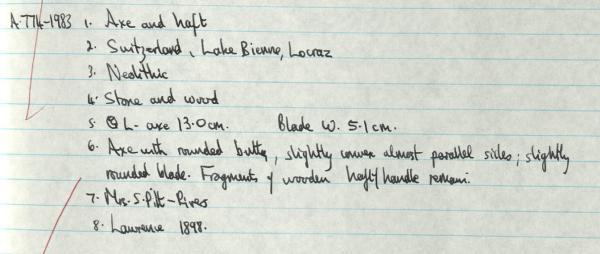 A.774-1983 1. Axe and haft
2. Switzerland, Lake Bienne, Locraz
3. Neolithic
4. Stone and wood
5. L- axe 13.0cm. Blade W. 5.1cm.
6. Axe with rounded butt, slightly convex almost parallel sides; slightly
rounded blade. Fragments of wooden haft/handle remain.
7. Mrs. S. Pitt-Rivers
8. Lawrence 1898.